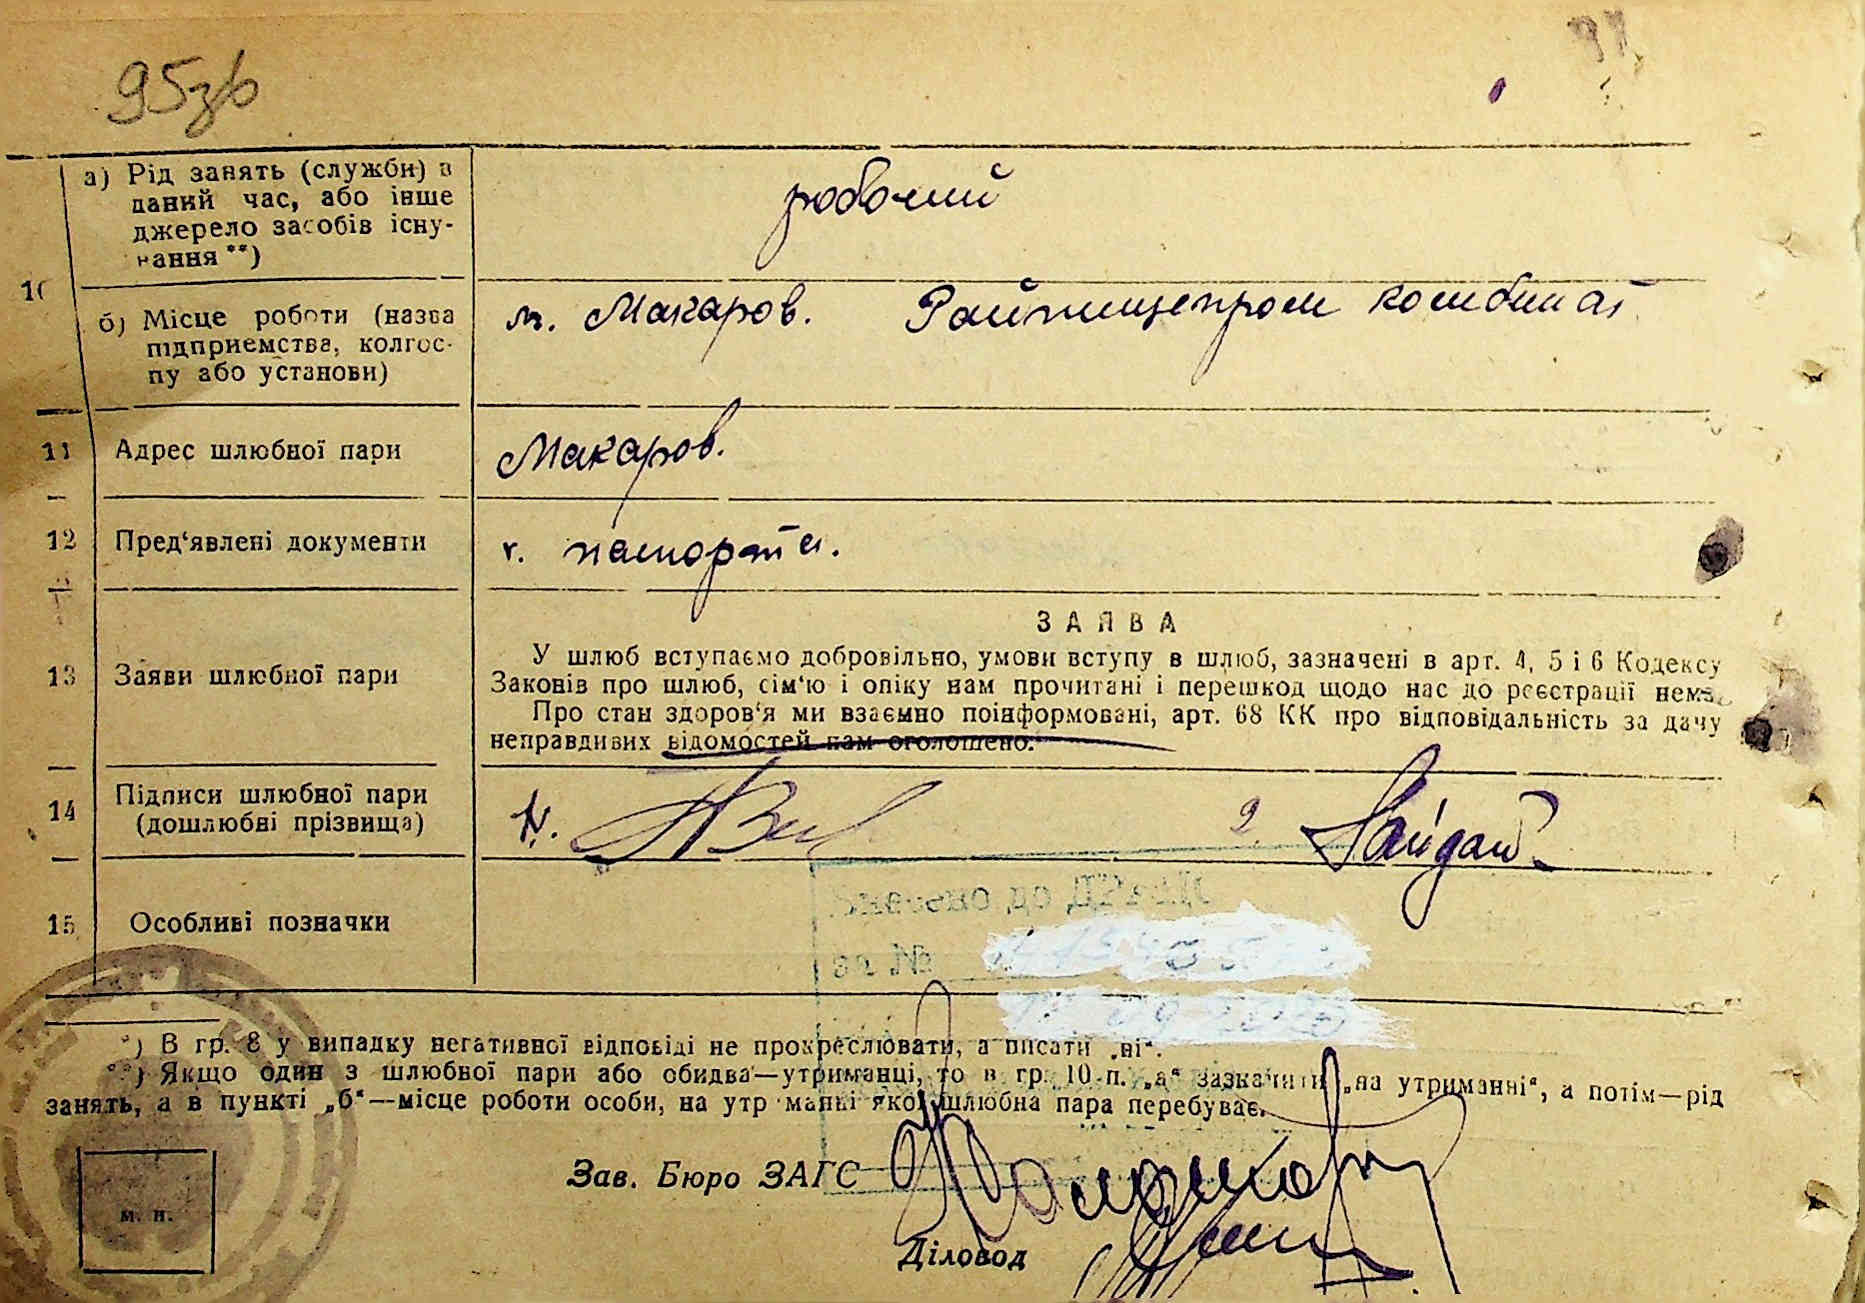 95зв
10
а) Рід занять (служби) в
даний час, або інше
джерело засобів існу-
вання **)
робочий
б) Місце роботи (назва
підприємства, колгос-
пу або установи)
м. Макаров. Райпищепром комбинат
11 Адрес шлюбної пари Макаров.
12 Пред‘явлені документи паспорта.
ЗАЯВА
13 Заяви шлюбної пари
У шлюб вступаємо добровільно, умови вступу в шлюб, зазначені в арт. 4, 5 і 6 Кодексу
Законів про шлюб, сім‘ю і опіку нам прочитані і перешкод щодо нас до реєстрації нема.
Про стан здоров‘я ми взаємно поінформовані, арт. 68 КК про відповідальність за дачу
неправдивих відомостей нам оголошено.
14 Підписи шлюбної пари
(дошлюбні прізвища)
2 Гайдай
15 Особливі позначки
за №
*) В гр. 8 у випадку негативної відповіді не прокреслювати, а писати „ні“.
**) Якщо один з шлюбної пари або обидва—утриманці, то в гр. 10 п. „а“ зазначити „на утриманні“, а потім—рід
занять, а в пункті „б“—місце роботи особи, на утриманні якої шлюбна пара перебуває.
Зав. Бюро ЗАГС
м. п.
Діловод